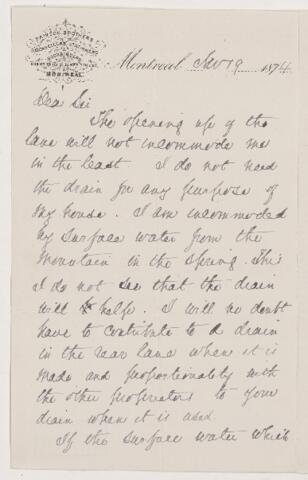 DAWSON BROTHERS
BOOKSELLERS, STATIONERS
MONTREAL
Montreal Nov 19 1874
Dear Sir
The opening up of the
lane will not incommode me
in the least I do not need
the drain for any purpose of
my house. I am incommoded
by surface water from the
mountain in the spring. This
I do not see that the drain
will helpe. I will no doubt
have to contribute to a drain
in the rear lane when it is
made and proportionably with
the other proprietors to your
drain when it is used
If the surface water which